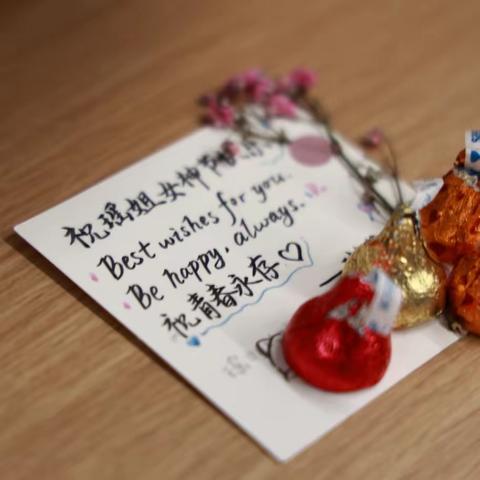 祝瑶姐女神
Best wishes for you.
Be happy, always.
祝青春永存♡